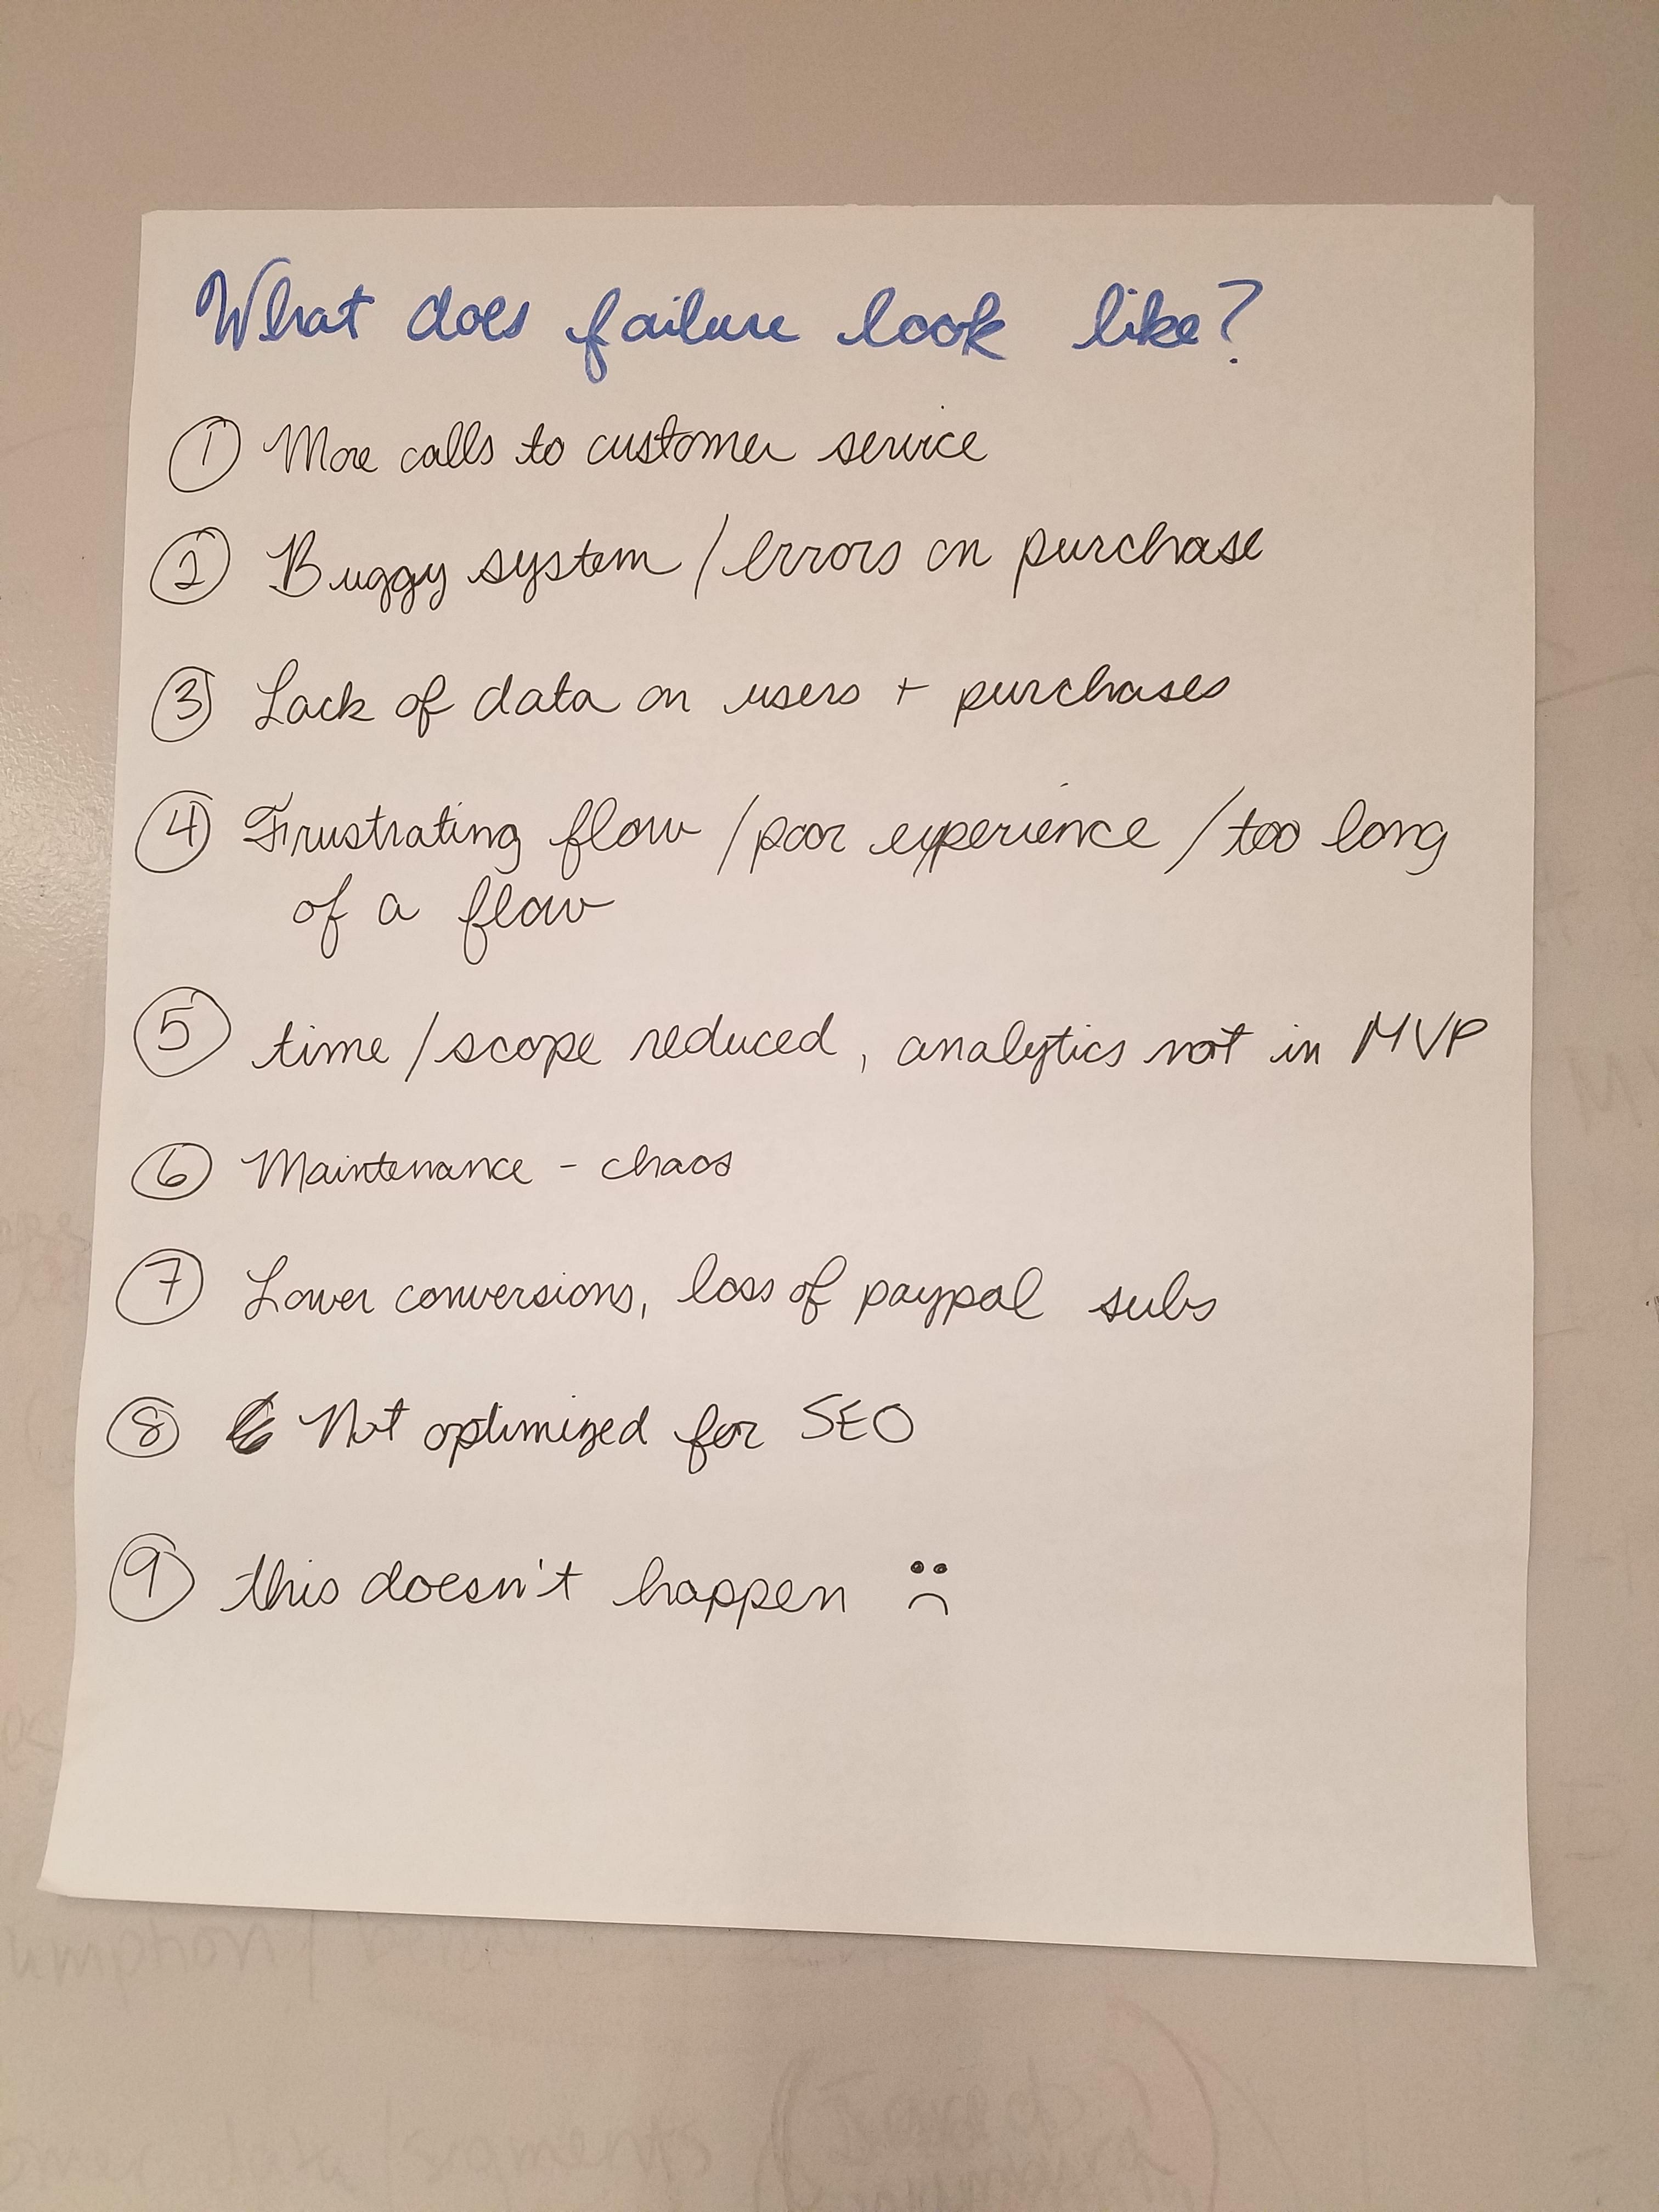 What does failure look like?
① More calls to customer service
② Buggy system / errors on purchase
③ Lack of data on users + purchases
④ Frustrating flow / poor experience / too long
of a flow
⑤ time / scope reduced, analytics not in MVP
⑥ Maintenance - chaos
⑦ Lower conversions, loss of paypal subs
⑧ Not optimized for SEO
⑨ this doesn't happen :(